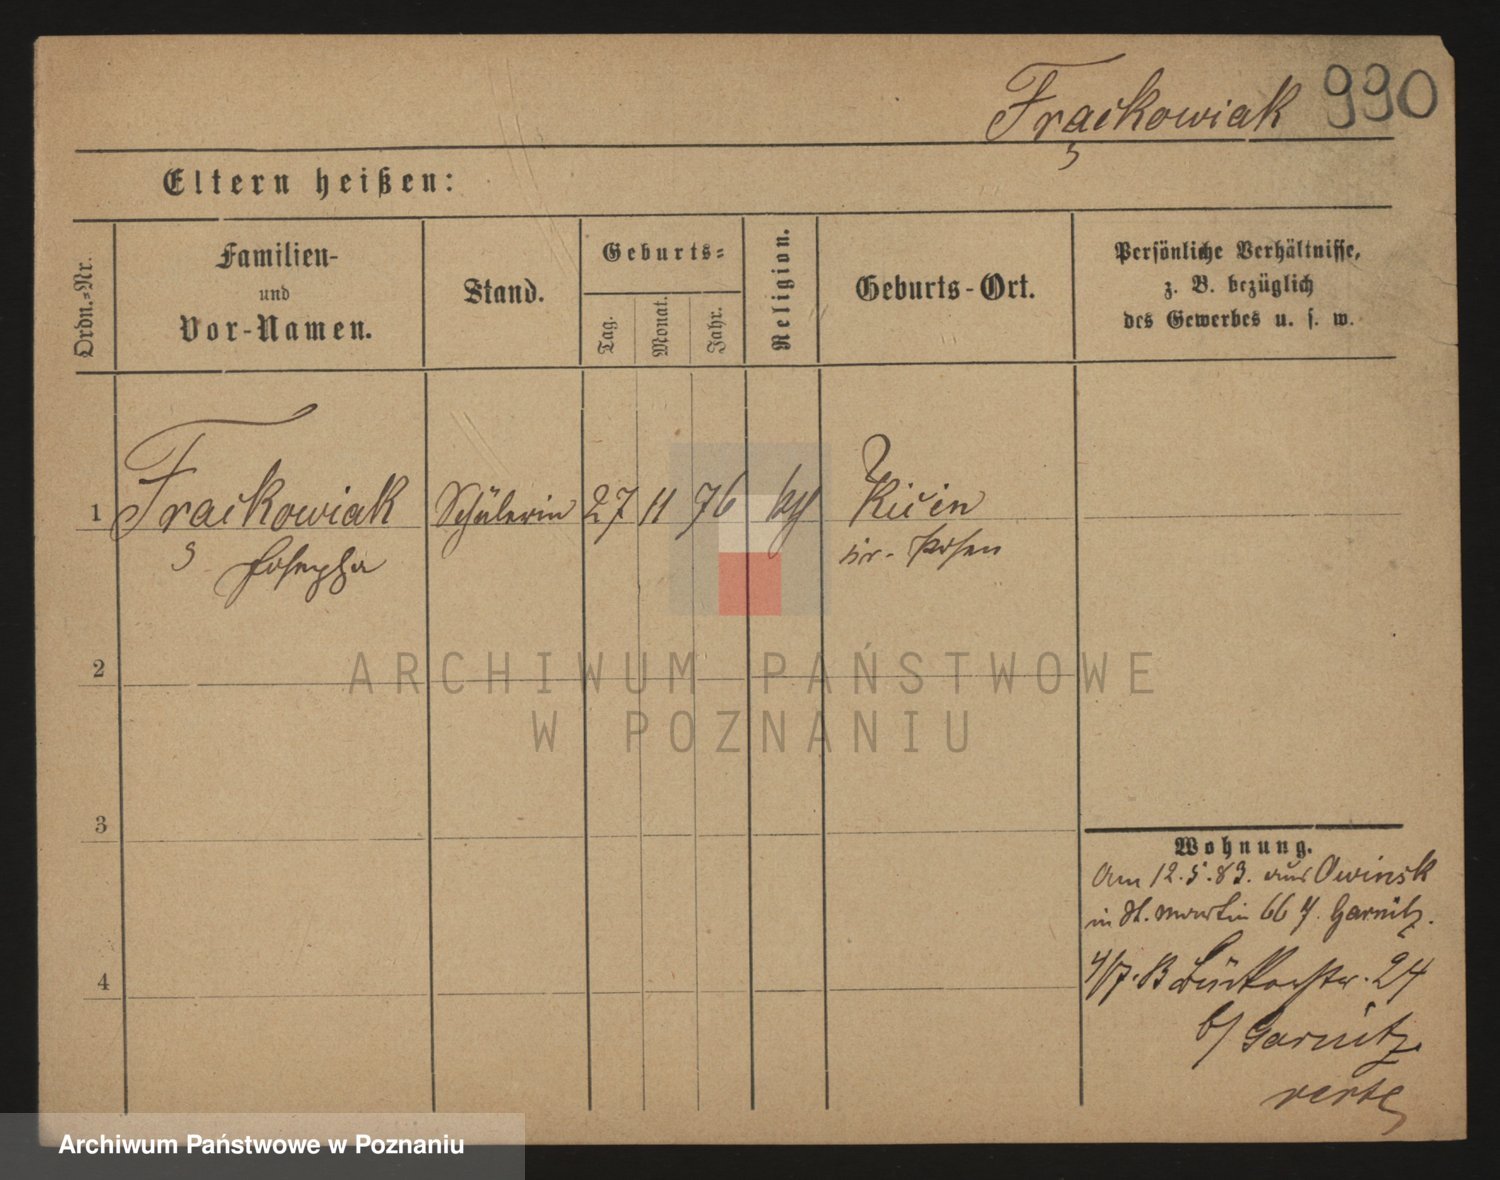 Frąckowiak 990
Eltern heißen:
Ordn.-Nr.
Familien-
und
Vor-Namen.
Stand.
Geburts-
Tag.
Monat.
Jahr.
Religion.
Geburts-Ort.
Persönliche Verhältnisse,
z. B. bezüglich
des Gewerbes u. s. w.
1 Frąckowiak Schülerin 27 11 76 Kicin
Josepha Posen
2
3
4
Wohnung.
Am 12.5.83. aus Owinsk
in St. Martin 66 Garnitz.
Bäckerstr. 24
b/ Garnitz
verte
ARCHIWUM PAŃSTWOWE
W POZNANIU
Archiwum Państwowe w Poznaniu